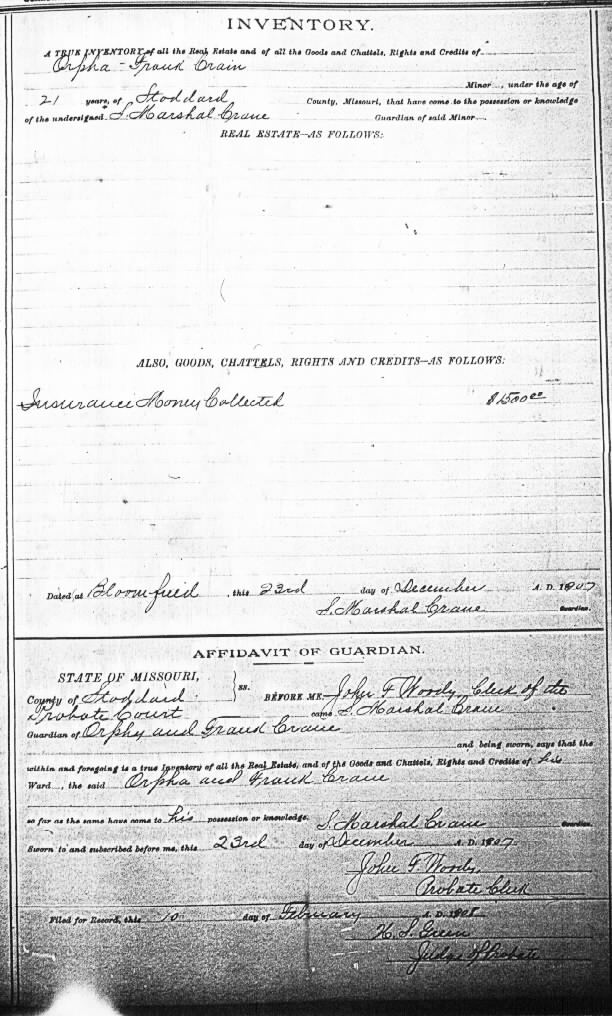 INVENTORY.
A TRUE INVENTORY of all the Real Estate and of all the Goods and Chattels, Rights and Credits of
Orpha - Frank Crain
Minor , under the age of
21 years, of Stoddard County, Missouri, that have come to the possession or knowledge
of the undersigned. S. Marshal Crane Guardian of said Minor .
REAL ESTATE—AS FOLLOWS:
ALSO, GOODS, CHATTELS, RIGHTS AND CREDITS—AS FOLLOWS:
Insurance Money Collected $1500.00
Dated at Bloomfield , this 23rd day of December A. D. 1907
S. Marshal Crane Guardian.
AFFIDAVIT OF GUARDIAN.
STATE OF MISSOURI,
County of Stoddard } ss. BEFORE ME John F Woody Clerk of the
Probate Court came S. Marshal Crane
Guardian of Orphy and Frank Crane
and being sworn, says that the
within and foregoing is a true Inventory of all the Real Estate, and of the Goods and Chattels, Rights and Credits of his
Ward , the said Orpha and Frank Crane
so far as the same have come to his possession or knowledge. S. Marshal Crane Guardian.
Sworn to and subscribed before me, this 23rd day of December A. D. 1907
John F Woody,
Probate Clerk
Filed for Record, this 10 day of February A. D. 1908
H. S. Green
Judge of Probate